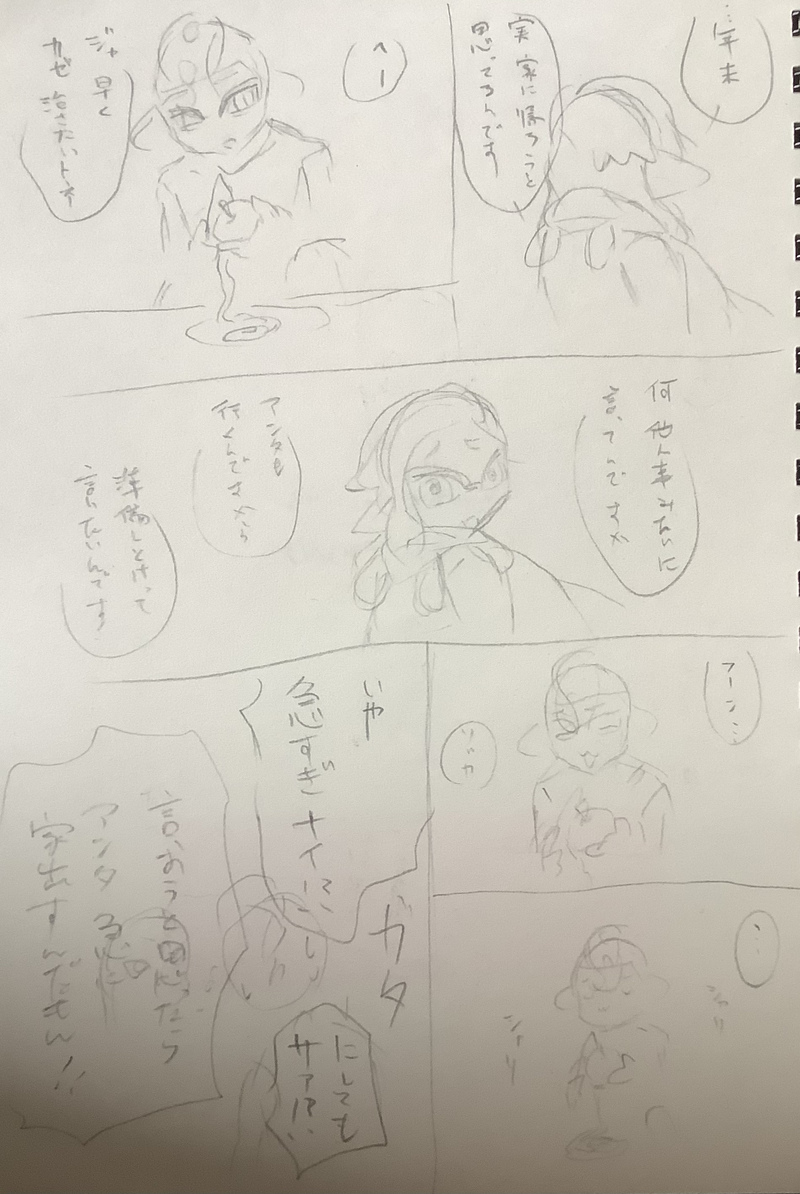 …年末
実家に帰ろうと
思ってるんです
へー
ジャ早く
カゼ治さないとネ
何他人事みたいに
言ってんですか
アンタも
行くんですから
準備しとけって
言いたいんです
アーン…
リンカ
…
シャリ
シャリ
いや
急すぎナイ!?
ガタ
にしても
サァ!?
言おうと思ったら
アンタ
家出すんだもん!!